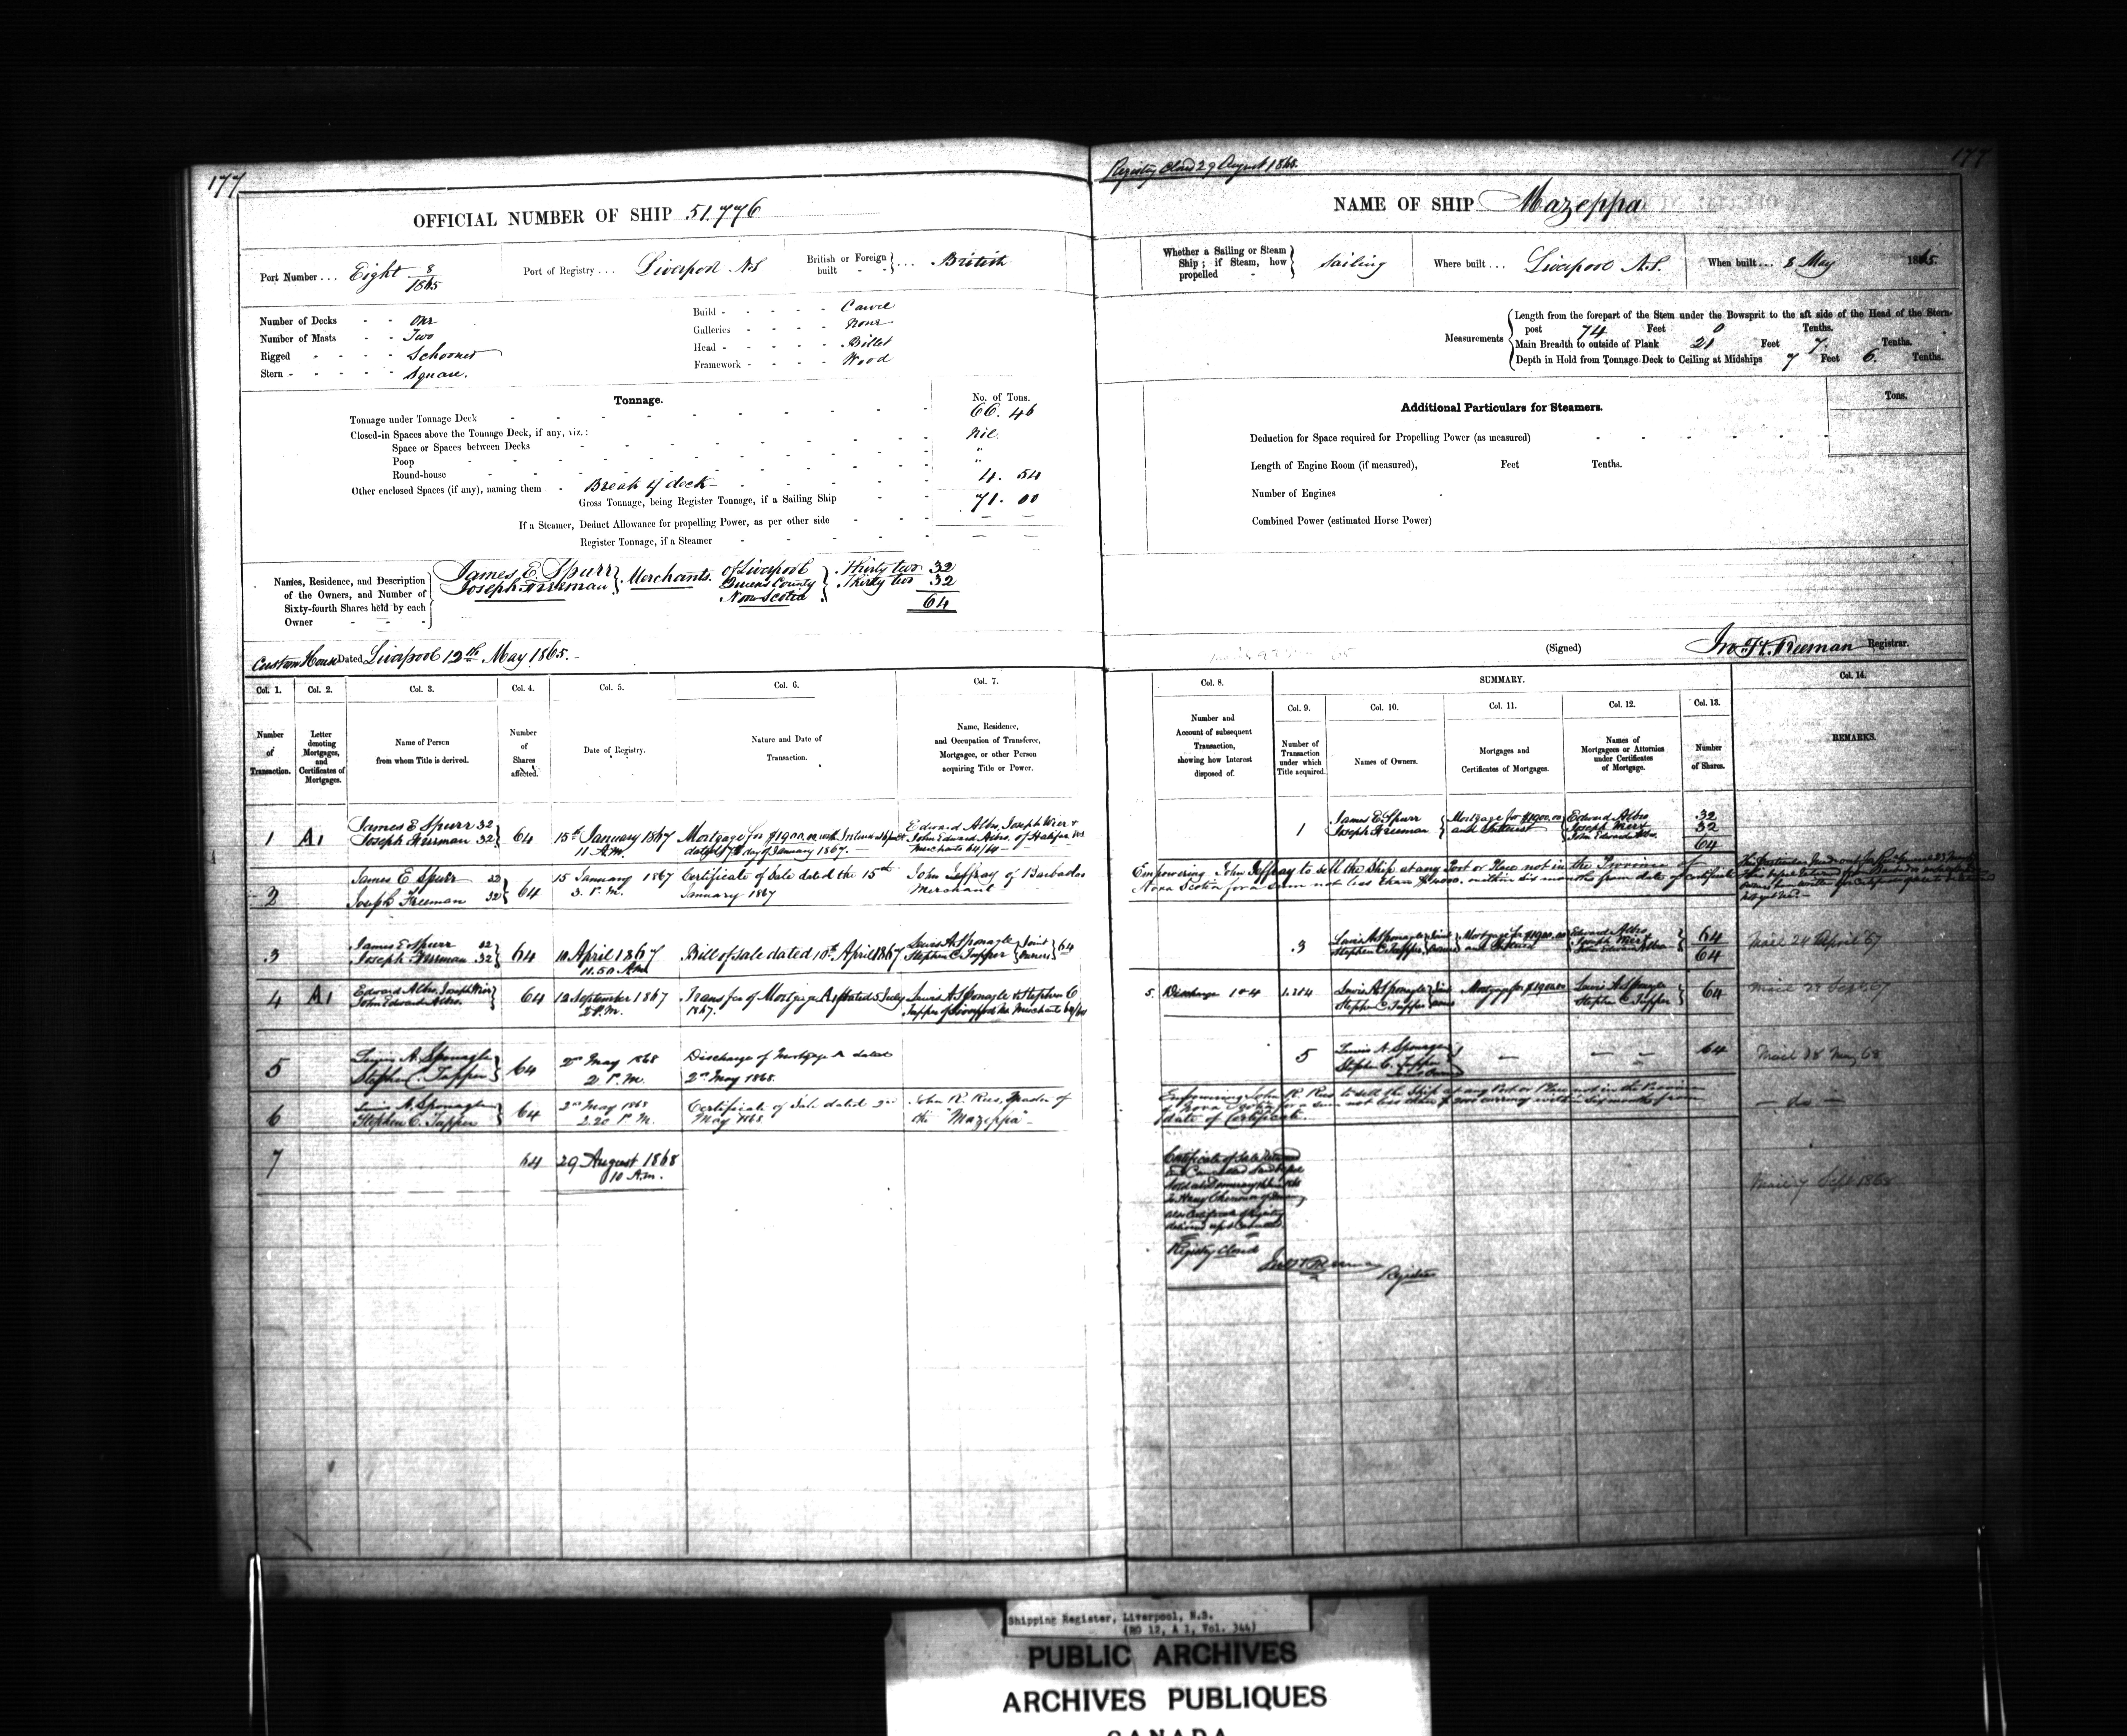 177
OFFICIAL NUMBER OF SHIP 51.776
Port Number ... Eight 8/1865
Port of Registry ... Liverpool N.S
British or Foreign built - - } ... British
Number of Decks - - One
Number of Masts - - Two
Rigged - - - - Schooner
Stern - - - - - Square.
Build - - - - - Carvel
Galleries - - - - None
Head - - - - - Billet
Framework - - - - Wood
Tonnage.
No. of Tons.
Tonnage under Tonnage Deck 66. 46
Closed-in Spaces above the Tonnage Deck, if any, viz.: Nil.
Space or Spaces between Decks "
Poop "
Round-house
Other enclosed Spaces (if any), naming them - Break of deck - 4. 54
Gross Tonnage, being Register Tonnage, if a Sailing Ship 71. 00
If a Steamer, Deduct Allowance for propelling Power, as per other side - - -
Register Tonnage, if a Steamer
Names, Residence, and Description of the Owners, and Number of Sixty-fourth Shares held by each Owner
James E. Spurr
Joseph Freeman } Merchants. of Liverpool
Queens County
Nova Scotia
Thirty two 32
Thirty two 32
64
Custom House Dated Liverpool 12th May 1865.-
Col. 1.
Number of Transaction.
Col. 2.
Letter denoting Mortgages, and Certificates of Mortgages.
Col. 3.
Name of Person from whom Title is derived.
Col. 4.
Number of Shares affected.
Col. 5.
Date of Registry.
Col. 6.
Nature and Date of Transaction.
Col. 7.
Name, Residence, and Occupation of Transferee, Mortgagee, or other Person acquiring Title or Power.
1
A1
James E Spurr 32
Joseph Freeman 32
64
15th January 1867
11 A.M.
Mortgage for $1900.00 with Interest
day of January 1867.
Edward Albro, Joseph Wier &
John Edward Albro, of Halifax N.S
Merchants 64/64
2
James E Spurr 32
Joseph Freeman 32
64
15 January 1867
3. P.M.
Certificate of Sale dated the 15th
January 1867
John Jeffray of Barbados
Merchant
3
James E Spurr 32
Joseph Freeman 32
64
10 April 1867
11.50 A.M
Bill of Sale dated 10th April 1867
Lewis A Sponagle
Stephen C. Tupper } Joint Owners } 64
4
A1
Edward Albro, Joseph Wier
John Edward Albro.
64
12 September 1867
2 P.M.
Transfer of Mortgage A dated 5 July
1867.
Lewis A Sponagle & Stephen C
Tupper of Liverpool N.S. Merchants 64/64
5
Lewis A. Sponagle
Stephen C. Tupper
64
2nd May 1868
2 P.M.
Discharge of Mortgage A dated
2nd May 1868.
6
Lewis A. Sponagle
Stephen C. Tupper
64
2nd May 1868
2.20 P.M.
Certificate of Sale dated 2nd
May 1868
John R. Rees, Master of
the "Mazeppa"
7
64
29 August 1868
10 A.M.
Registry Closed 29 August 1868.
177
NAME OF SHIP Mazeppa
Whether a Sailing or Steam Ship; if Steam, how propelled - } Sailing
Where built ... Liverpool N.S.
When built ... 8 May 1865.
Measurements
Length from the forepart of the Stem under the Bowsprit to the aft side of the Head of the Stern-
post 74 Feet 0 Tenths.
Main Breadth to outside of Plank 21 Feet 7. Tenths.
Depth in Hold from Tonnage Deck to Ceiling at Midships 7 Feet 6. Tenths.
Additional Particulars for Steamers.
Tons.
Deduction for Space required for Propelling Power (as measured)
Length of Engine Room (if measured), Feet Tenths.
Number of Engines
Combined Power (estimated Horse Power)
(Signed) Jno. H. Freeman Registrar.
Col. 8.
Number and Account of subsequent Transaction, showing how Interest disposed of.
SUMMARY.
Col. 9.
Number of Transaction under which Title acquired.
Col. 10.
Names of Owners.
Col. 11.
Mortgages and Certificates of Mortgages.
Col. 12.
Names of Mortgagees or Attornies under Certificates of Mortgage.
Col. 13.
Number of Shares.
Col. 14.
REMARKS.
1
James E Spurr
Joseph Freeman
Mortgage for $1900.00
and Interest
Edward Albro
Joseph Wier
John Edward Albro.
32
32
64
Empowering John Jeffray to sell the Ship at any Port or Place not in the Province of
Nova Scotia for a sum not less than within six months from date of Certificate
3
Lewis A Sponagle
Stephen C. Tupper Joint Owners
Mortgage for $1900.00
and Interest
Edward Albro
Joseph Wier
John Edward Albro
64
64
Mail 24 April '67
5. Discharge 1 & 4
1.3&4
Lewis A Sponagle
Stephen C Tupper Joint Owners
Mortgage for $1900.00
Lewis A Sponagle
Stephen C Tupper
64
Mail 28 Sept 67
5
Lewis A. Sponagle
Stephen C. Tupper
Joint Owners
64
Mail 18 May 68
Empowering John R. Rees to sell the Ship at any Port or Place not in the Province
of Nova Scotia for a sum not less than $ 2000 currency within Six months from
date of Certificate.
- do. -
Certificate of Sale returned
and Cancelled
Sold at Demerara
to Henry
also Certificate of Registry
delivered up & Cancelled
Registry Closed
Jno H Freeman
Registrar
Mail 7 Sept 1868
Shipping Register, Liverpool, N.S.
(RG 12, A 1, Vol. 344)
PUBLIC ARCHIVES
ARCHIVES PUBLIQUES
CANADA